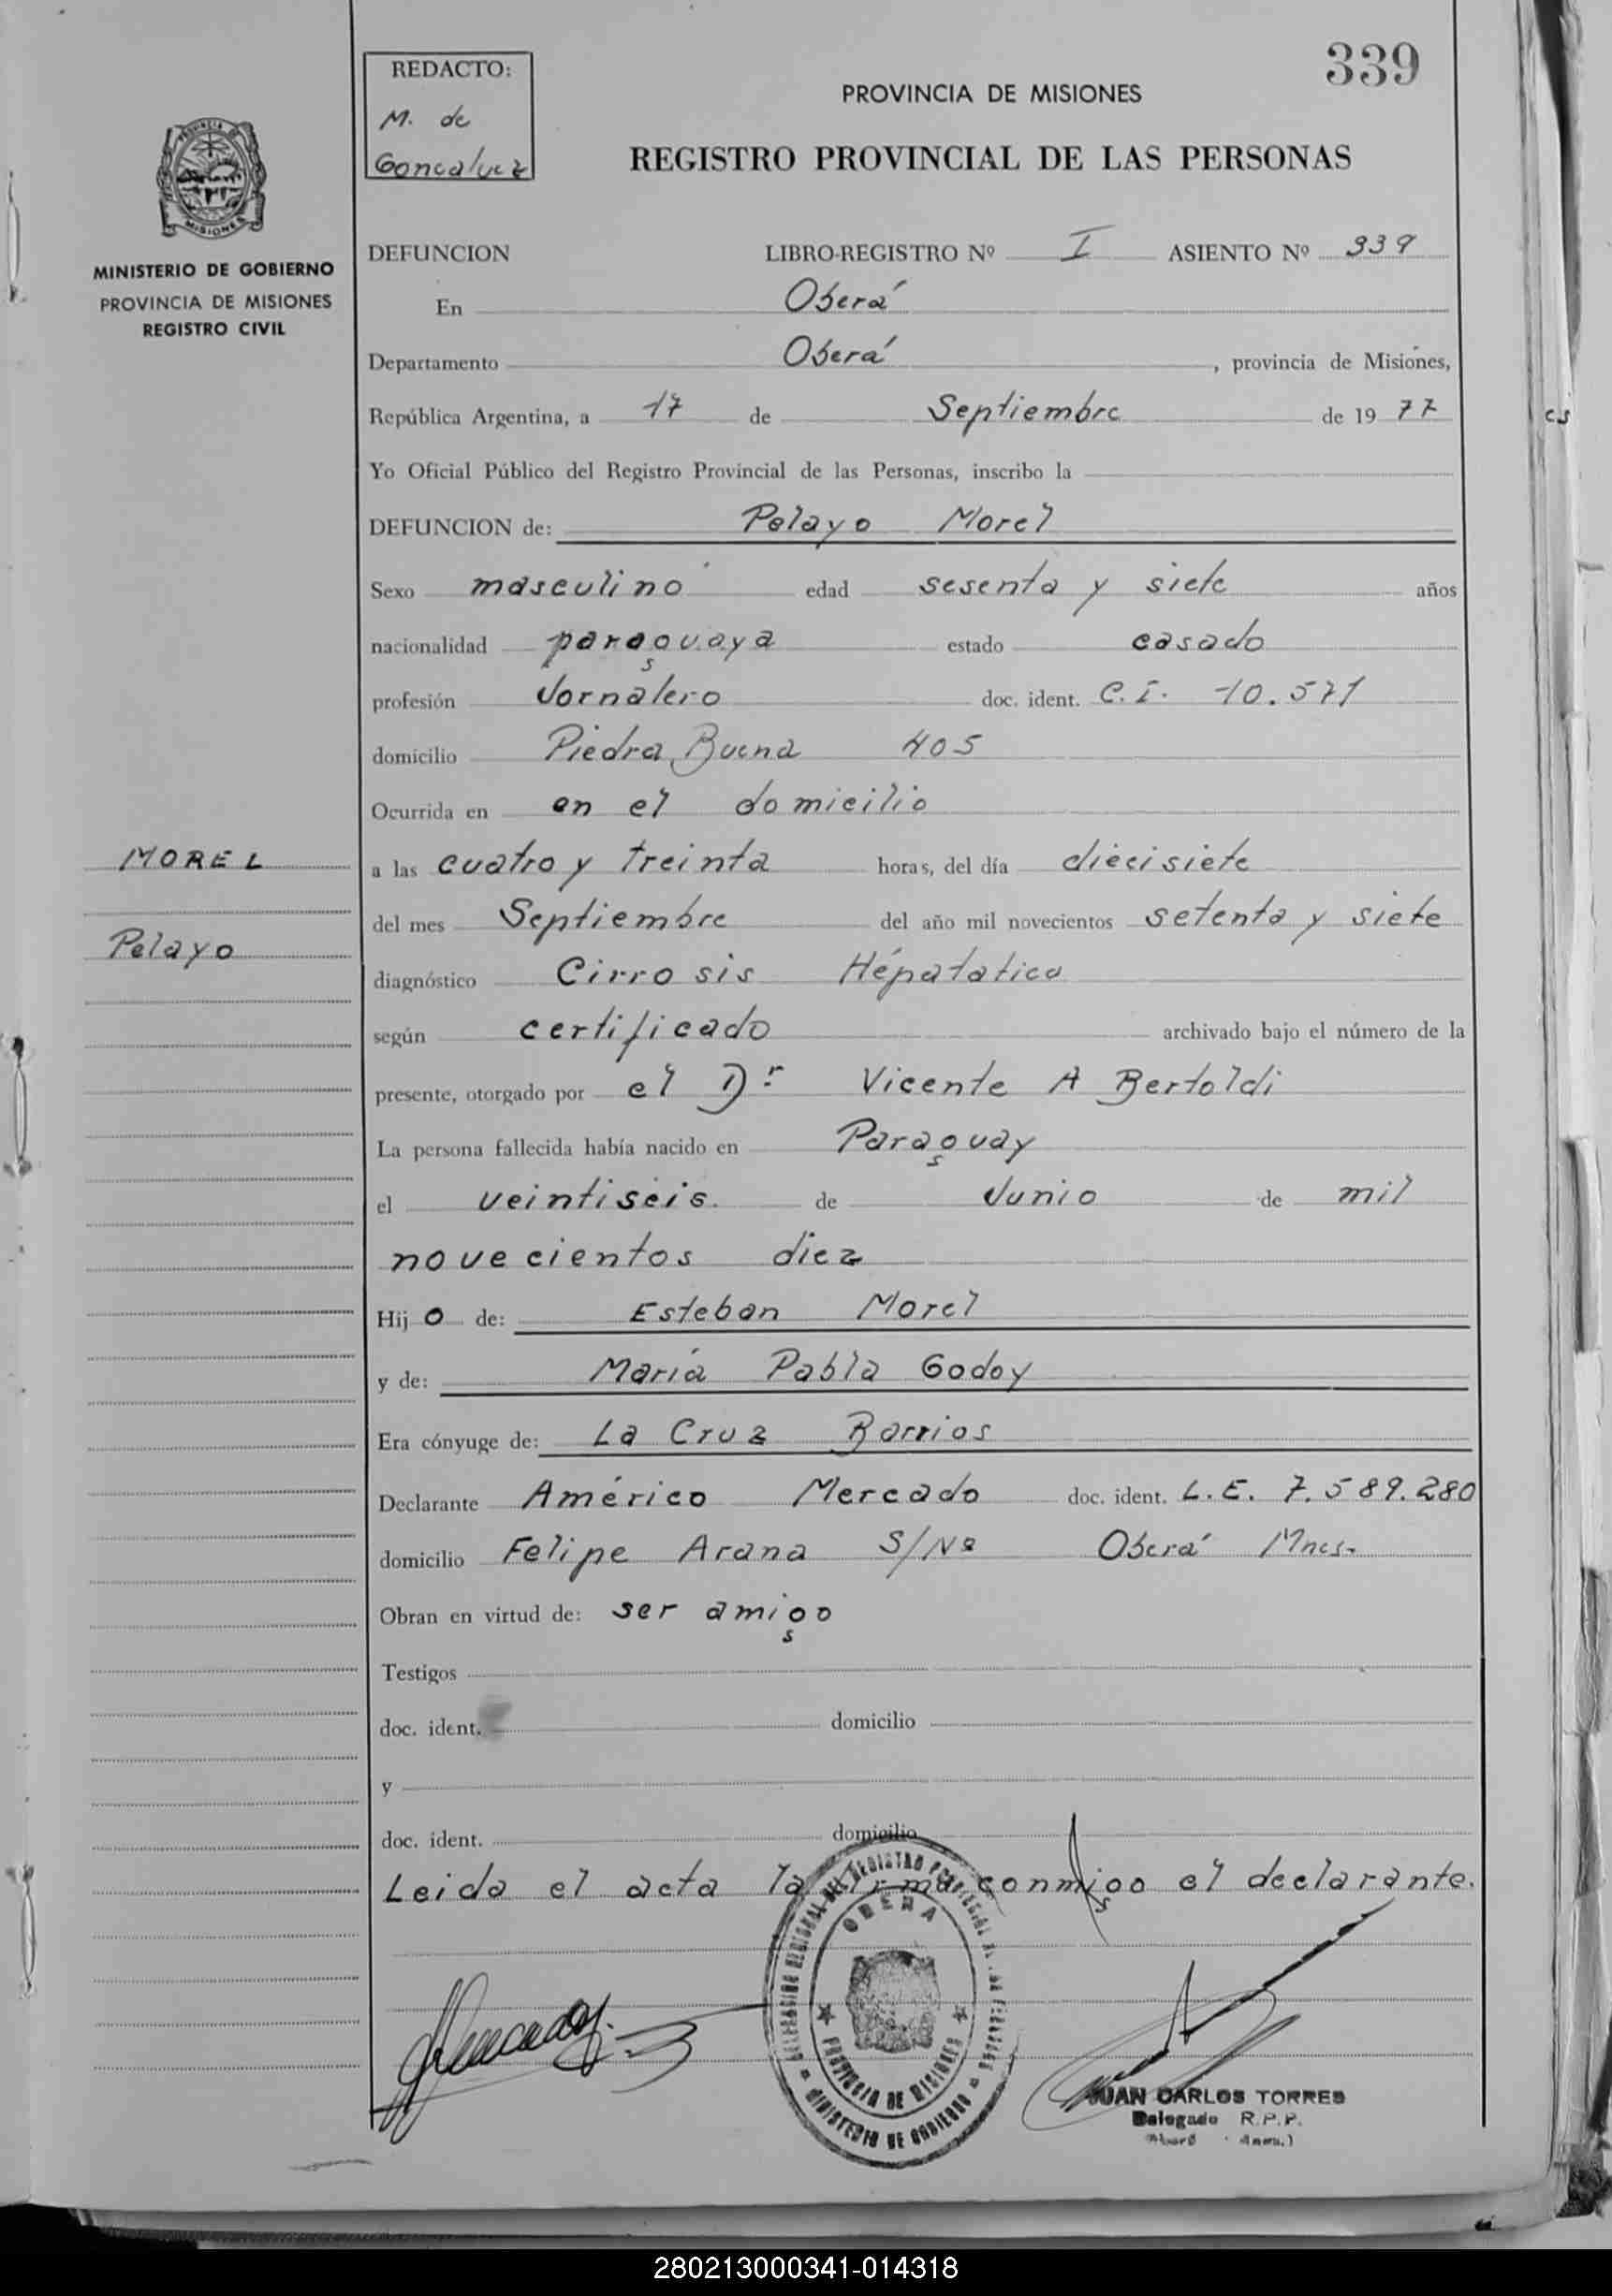 339
REDACTO:
M. de
Goncalvez
PROVINCIA DE MISIONES
REGISTRO PROVINCIAL DE LAS PERSONAS
MISIONES
MINISTERIO DE GOBIERNO
PROVINCIA DE MISIONES
REGISTRO CIVIL
DEFUNCION LIBRO-REGISTRO Nº I ASIENTO Nº 339
En Oberá
Departamento Oberá, provincia de Misiones,
República Argentina, a 17 de Septiembre de 1977
Yo Oficial Público del Registro Provincial de las Personas, inscribo la
DEFUNCION de: Pelayo Morel
Sexo masculino edad sesenta y siete años
nacionalidad paraguaya estado casado
profesión Jornalero doc. ident. C.I. 10.571
domicilio Piedra Buena 405
Ocurrida en en el domicilio
MOREL
a las cuatro y treinta horas, del día diecisiete
del mes Septiembre del año mil novecientos setenta y siete
Pelayo
diagnóstico Cirrosis Hépatatica
según certificado archivado bajo el número de la
presente, otorgado por el Dr Vicente A Bertoldi
La persona fallecida había nacido en Paraguay
el veintiseis de Junio de mil
novecientos diez
Hijo de: Esteban Morel
y de: María Pabla Godoy
Era cónyuge de: La Cruz Barrios
Declarante Américo Mercado doc. ident. L.E. 7.589.280
domicilio Felipe Arana S/Nº Oberá Mnes.
Obran en virtud de: ser amigo
Testigos
doc. ident. domicilio
y
doc. ident. domicilio
Leida el acta la firma conmigo el declarante.
OBERA
PROVINCIA DE MISIONES
MINISTERIO DE GOBIERNO
JUAN CARLOS TORRES
Delegado R.P.P.
280213000341-014318